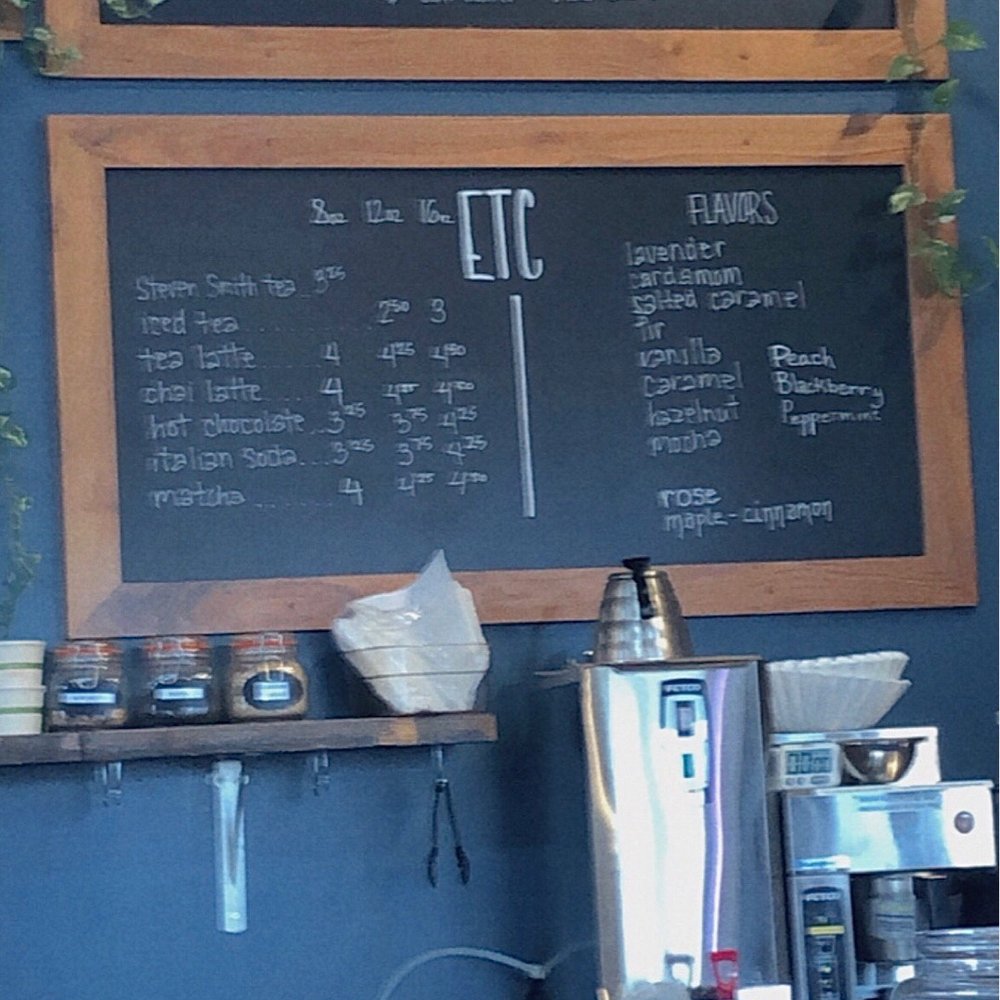 8oz 12oz 16oz
ETC
Steven Smith tea 3.25
iced tea 2.50 3
tea latte 4 4.25 4.50
chai latte 4 4.25 4.50
hot chocolate 3.25 3.75 4.25
italian soda 3.25 3.75 4.25
matcha 4 4.25 4.50
FLAVORS
lavender
cardamom
salted caramel
fir
vanilla
caramel
hazelnut
mocha
Peach
Blackberry
Peppermint
rose
maple-cinnamon
FETCO
FETCO